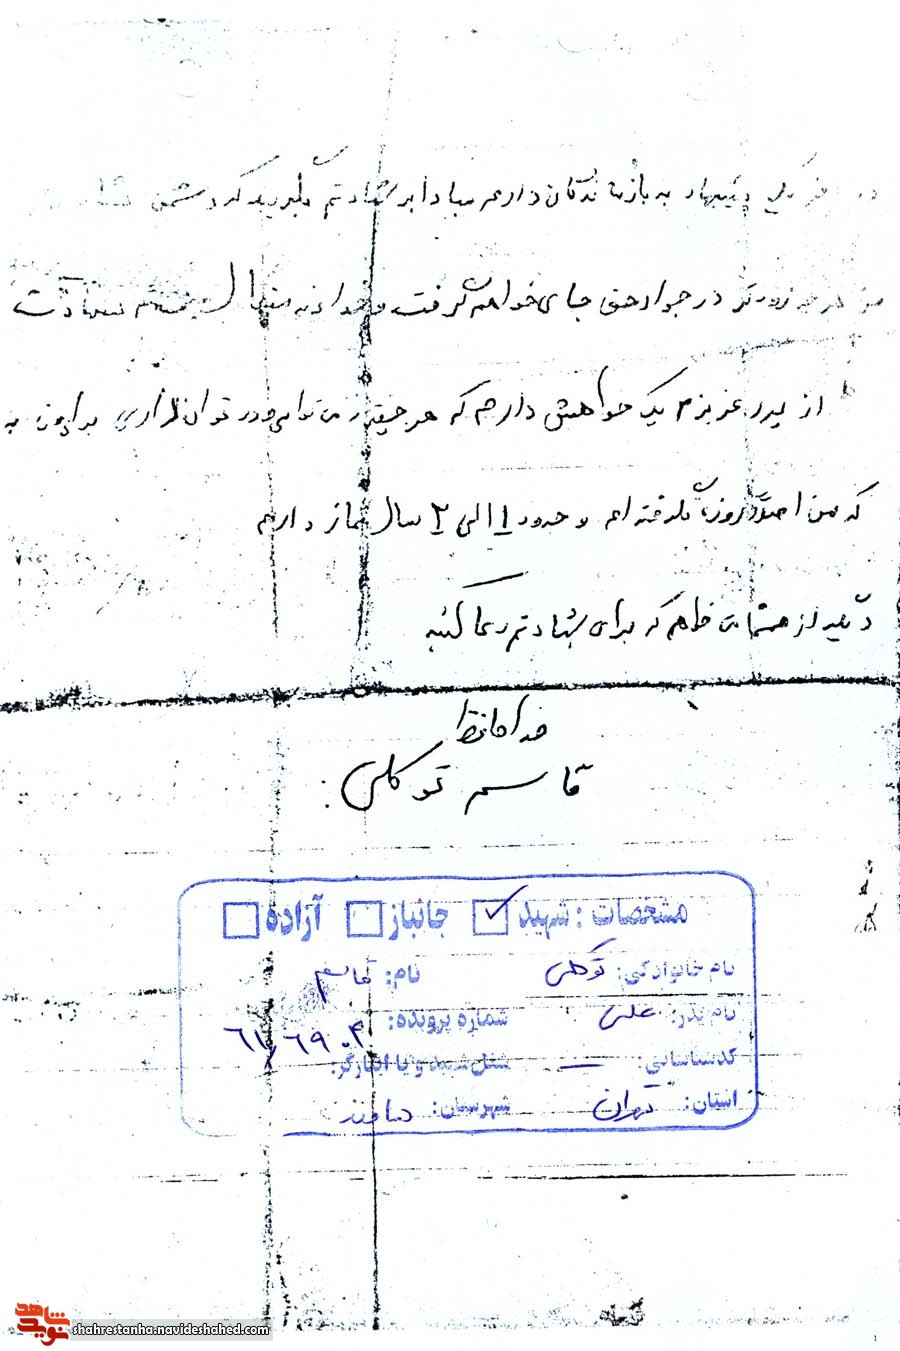 پیشنهاد به بازماندگان دارم مبادا بر شهادتم بگریید که دشمن
در جوار حق جای خواهم گرفت و خدا
از پدر عزیزم یک خواهش دارم که هر چقدر می توانی و در توان داری برایم
که من اصلاً روزه نگرفته ام و حدود ۱ الی ۲ سال نماز دارم
از شما می خواهم که برای شهادتم دعا کنید
خداحافظ
قاسم توکلی
مشخصات : شهید ✓ جانباز آزاده
نام خانوادگی: توکلی نام: قاسم
نام پدر: علی شماره پرونده:
کدشناسایی: — شغل شهید و یا ایثارگر:
استان: تهران شهرستان: دماوند
نوید شاهد
shahrestanha.navideshahed.com